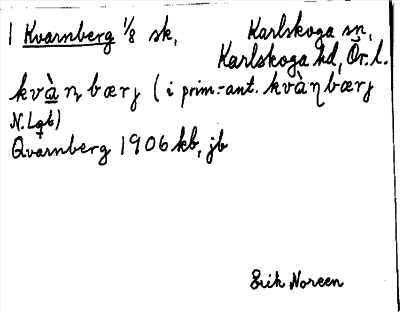 1 Kvarnberg 1/8 sk,
Karlskoga sn,
Karlskoga hd, Ör. l.
kvàn̥bærj (i prim.-ant. kvàɳbærj
N. Lgt)
Qvarnberg 1906 kb, jb
Erik Noreen